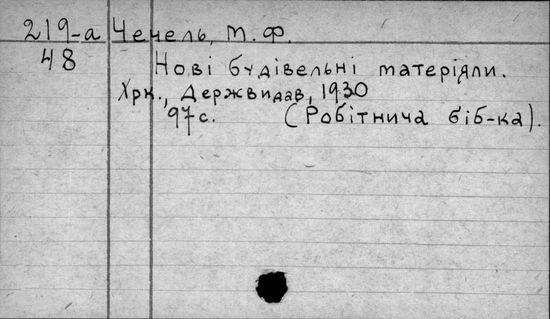 219-а Чечель, М. Ф.
48 Нові будівельні матеріяли.
Хрк., Держвидав, 1930
97 с. (Робітнича біб-ка).